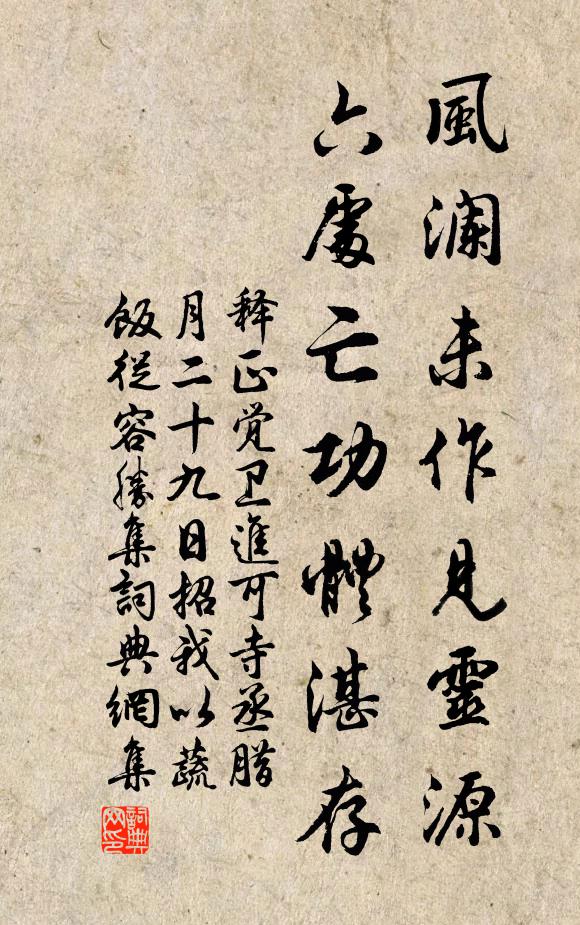 風澜未作見靈源
六處亡功體湛存
释正觉卫進可寺丞腊
月二十九日招我以蔬
飯從容勝集詞典網集
詞典
网印